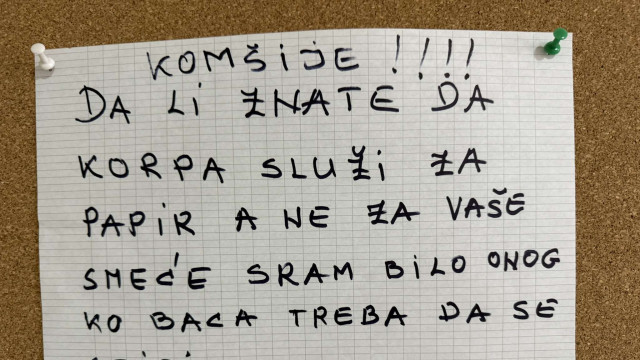 KOMŠIJE !!!!
DA LI ZNATE DA
KORPA SLUŽI ZA
PAPIR A NE ZA VAŠE
SMEĆE SRAM BILO ONOG
KO BACA TREBA DA SE